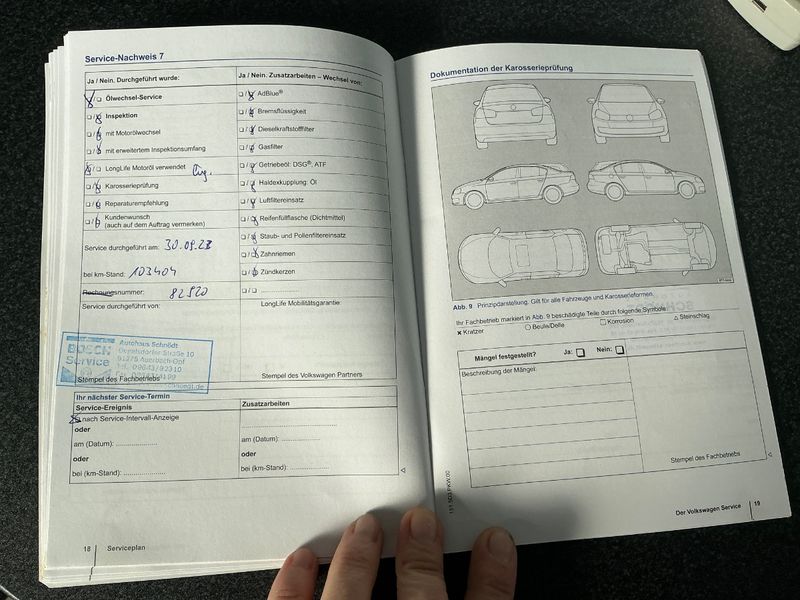 Service-Nachweis 7
Ja / Nein. Durchgeführt wurde:
Ölwechsel-Service
Inspektion
mit Motorölwechsel
mit erweitertem Inspektionsumfang
LongLife Motoröl verwendet
Karosserieprüfung
Reparaturempfehlung
Kundenwunsch
(auch auf dem Auftrag vermerken)
Service durchgeführt am: 30.09.23
bei km-Stand: 103404
Rechnungsnummer: 82920
Service durchgeführt von:
Ja / Nein. Zusatzarbeiten – Wechsel von:
AdBlue®
Bremsflüssigkeit
Dieselkraftstofffilter
Gasfilter
Getriebeöl: DSG®, ATF
Haldexkupplung: Öl
Luftfiltereinsatz
Reifenfüllflasche (Dichtmittel)
Staub- und Pollenfiltereinsatz
Zahnriemen
Zündkerzen
LongLife Mobilitätsgarantie
BOSCH
Service
Autohaus Schrödt
91275 Auerbach-Opf
Stempel des Fachbetriebs
Stempel des Volkswagen Partners
Ihr nächster Service-Termin
Service-Ereignis
nach Service-Intervall-Anzeige
oder
am (Datum):
oder
bei (km-Stand):
Zusatzarbeiten
am (Datum):
oder
bei (km-Stand):
18 Serviceplan
Dokumentation der Karosserieprüfung
Abb. 9 Prinzipdarstellung. Gilt für alle Fahrzeuge und Karosserieformen.
Ihr Fachbetrieb markiert in Abb. 9 beschädigte Teile durch folgende Symbole
× Kratzer ○ Beule/Delle □ Korrosion △ Steinschlag
Mängel festgestellt? Ja: Nein:
Beschreibung der Mängel:
Stempel des Fachbetriebs
Der Volkswagen Service 19